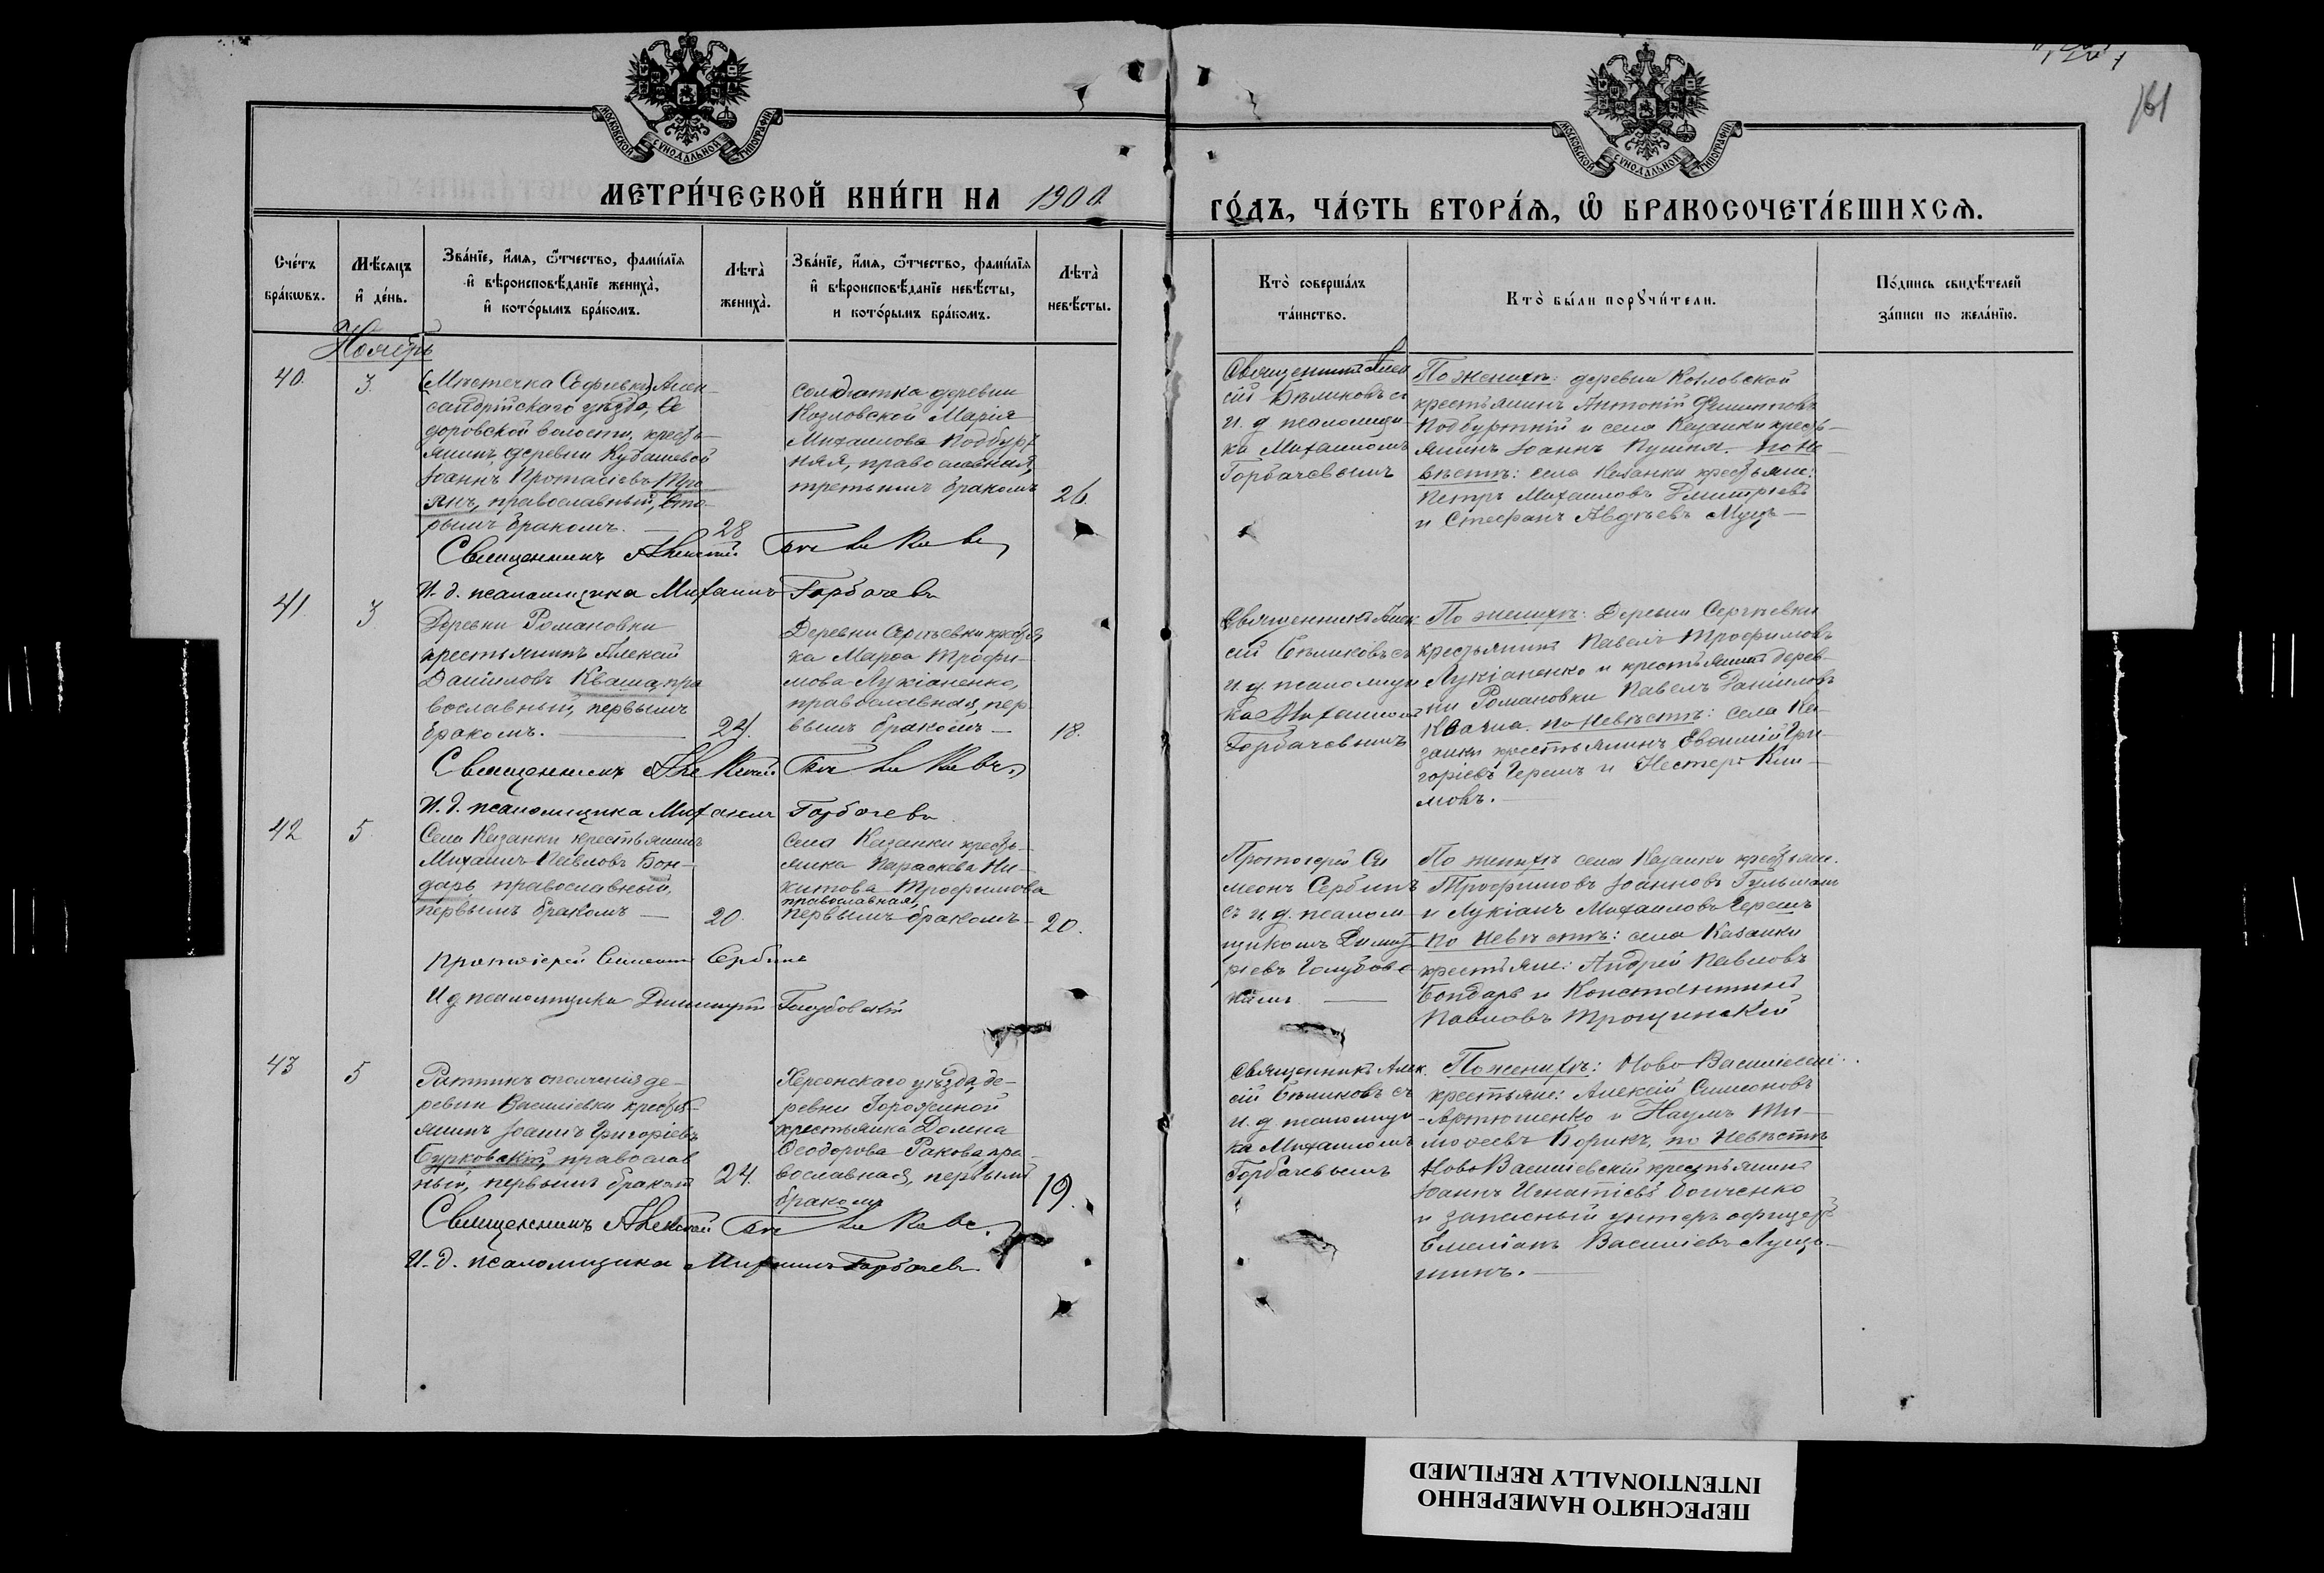 161
МОСКОВСКОЙ СѴНОДАЛЬНОЙ ТИПОГРАФІИ
МОСКОВСКОЙ СѴНОДАЛЬНОЙ ТИПОГРАФІИ
МЕТРИ́ЧЕСКОЙ КНИ́ГИ НА 1900
ГО́ДЪ, ЧА́СТЬ ВТОРА́Я, Ѡ БРАКОСОЧЕТА́ВШИХСЯ.
Сче́тъ бра́ковъ.
Мѣсяцъ и де́нь.
Зва́нїе, и́мя, ѻ́тчество, фами́лїя
и вѣроисповѣ́данїе жениха̀,
и кото́рымъ бра́комъ.
Лѣта̀ жениха̀.
Зва́нїе, и́мя, ѻ́тчество, фами́лїя
и вѣроисповѣ́данїе невѣ́сты,
и кото́рымъ бра́комъ.
Лѣта̀ невѣ́сты.
Кто̀ соверша́лъ та́инство.
Кто̀ бы́ли порꙋчи́тели.
По́дпись свидѣ́телей за́писи по жела́нїю.
Ноябрь
40.
3.
(Мѣстечка Софіевки) Алек-
сандрійскаго уѣзда, Ѳе
доровской волости, кресть-
янинъ деревни Кудашевой
Іоаннъ Протасіевъ Тро
янъ, православный, вто-
рымъ бракомъ.
28
солдатка деревни
Козловской Марія
Михаилова Подбурт
няя, православная,
третьимъ бракомъ
26.
Священникъ Алек
сій Бѣликовъ съ
и. д. псаломщи
ка Михаиломъ
Горбачевымъ
По женихѣ: деревни Козловской
крестьянинъ Антоній Филипповъ
Подбуртній и села Казанки кресть-
янинъ Іоаннъ Пушня. По не-
вѣстѣ: села Казанки крестьяне:
Петръ Михаиловъ Дмитріевъ
и Стефанъ Авдѣевъ Муць
Священникъ Алексій Бѣликовъ
И. д. псаломщика Михаилъ Горбачевъ
41.
3
Деревни Романовки
крестьянинъ Алексій
Даніиловъ Кваша, пра
вославный, первымъ
бракомъ.
24.
Деревни Сергѣевки крестьян
ка Марѳа Трофи-
мова Лукіаненко,
православная, пер
вымъ бракомъ
18.
Священникъ Алек
сій Бѣликовъ съ
и. д. псаломщи
ка Михаиломъ
Горбачевымъ
По женихѣ: Деревни Сергѣевки
крестьянинъ Павелъ Трофимовъ
Лукіаненко и крестьянинъ дерев-
ни Романовки Павелъ Даніиловъ
Кваша. по невѣстѣ: села Ка-
занки крестьянинъ Евѳимій Гри-
горіевъ Черешъ и Нестеръ Кли-
мовъ.
Священникъ Алексій Бѣликовъ
И. д. псаломщика Михаилъ Горбачевъ
42
5
Села Казанки крестьянинъ
Михаилъ Павловъ Бон-
дарь православный,
первымъ бракомъ
20.
села Казанки кресть-
янка Параскева Ни-
китова Трофимова
православная,
первымъ бракомъ
20.
Протоіерей Си
меонъ Сербинъ
съ и. д. псалом
щикомъ Димит
ріемъ Голубовс
кимъ
По женихѣ села Казанки крестьян.
Трофимовъ Іоанновъ
и Лукіанъ Михаиловъ Черешъ
по невѣстѣ: села Казанки
крестьяне: Андрей Павловъ
Бондарь и Константинъ
Павловъ Трощинскій
Протоіерей Симеонъ Сербинъ
И д псаломщика Димитрій Голубовскій
43
5
Ратникъ ополченія де-
ревни Василіевки кресть-
янинъ Іоаннъ Григоріевъ
Бурковскій, православ
ный, первымъ бракомъ
24.
Херсонскаго уѣзда, де-
ревни Горожиной
крестьянка Домна
Ѳеодорова Ракова, пра-
вославная, первымъ
бракомъ
19.
Священникъ Алек
сій Бѣликовъ съ
и. д. псаломщи
ка Михаиломъ
Горбачевымъ
По женихѣ: Ново-Василіевскі
крестьяне: Алексій Симеоновъ
Артюшенко и Наумъ Ти-
моѳеевъ Борикъ, по невѣстѣ
Ново Василіевскій крестьянинъ
Іоаннъ Игнатіевъ
и запасный унтеръ офицеръ
Емеліанъ Василіевъ Луца-
шинъ.
Священникъ Алексій Бѣликовъ.
И. д. псаломщика Михаилъ Горбачевъ
ПЕРЕСНЯТО НАМЕРЕННО
INTENTIONALLY REFILMED